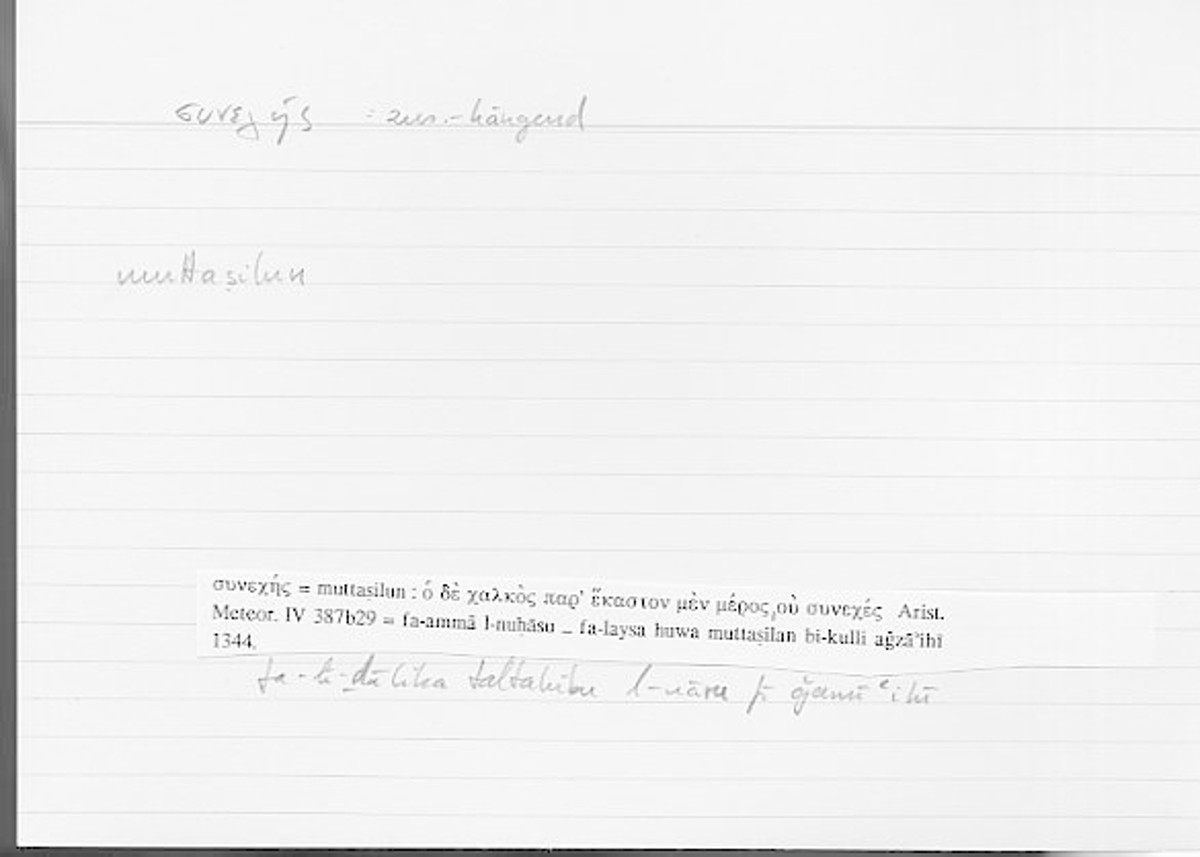 συνεχής : zus.-hängend
muttaṣilun
συνεχής = muttaṣilun : ὁ δὲ χαλκὸς παρ' ἕκαστον μὲν μέρος, οὐ συνεχές Arist.
Meteor. IV 387b29 = fa-ammā l-nuḥāsu _ fa-laysa huwa muttaṣilan bi-kulli aǧzāʾihī
1344.
fa-li-ḏālika taltahibu l-nāru fī ǧamīʿihī